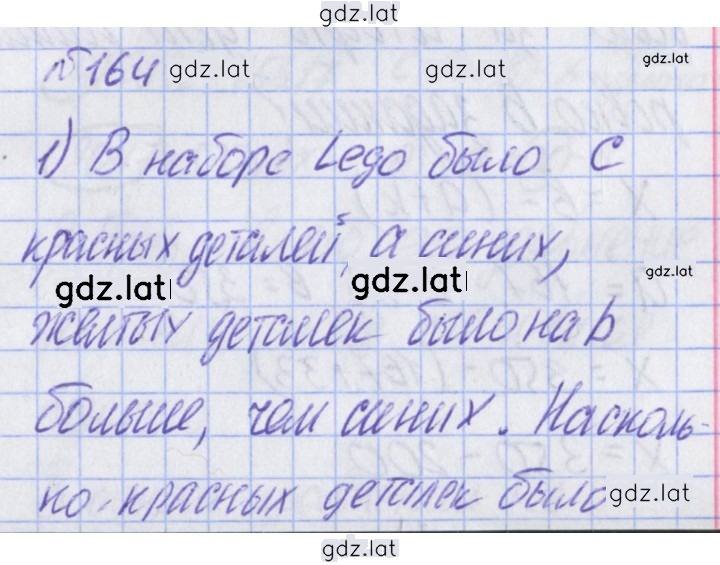 gdz.lat
№164 gdz.lat gdz.lat gdz.lat
1) В наборе Lego было c
красных деталей, a синих,
gdz.lat gdz.lat gdz.lat
желтых деталек было на b
больше, чем синих. Насколь-
ко красных деталек было gdz.lat
gdz.lat